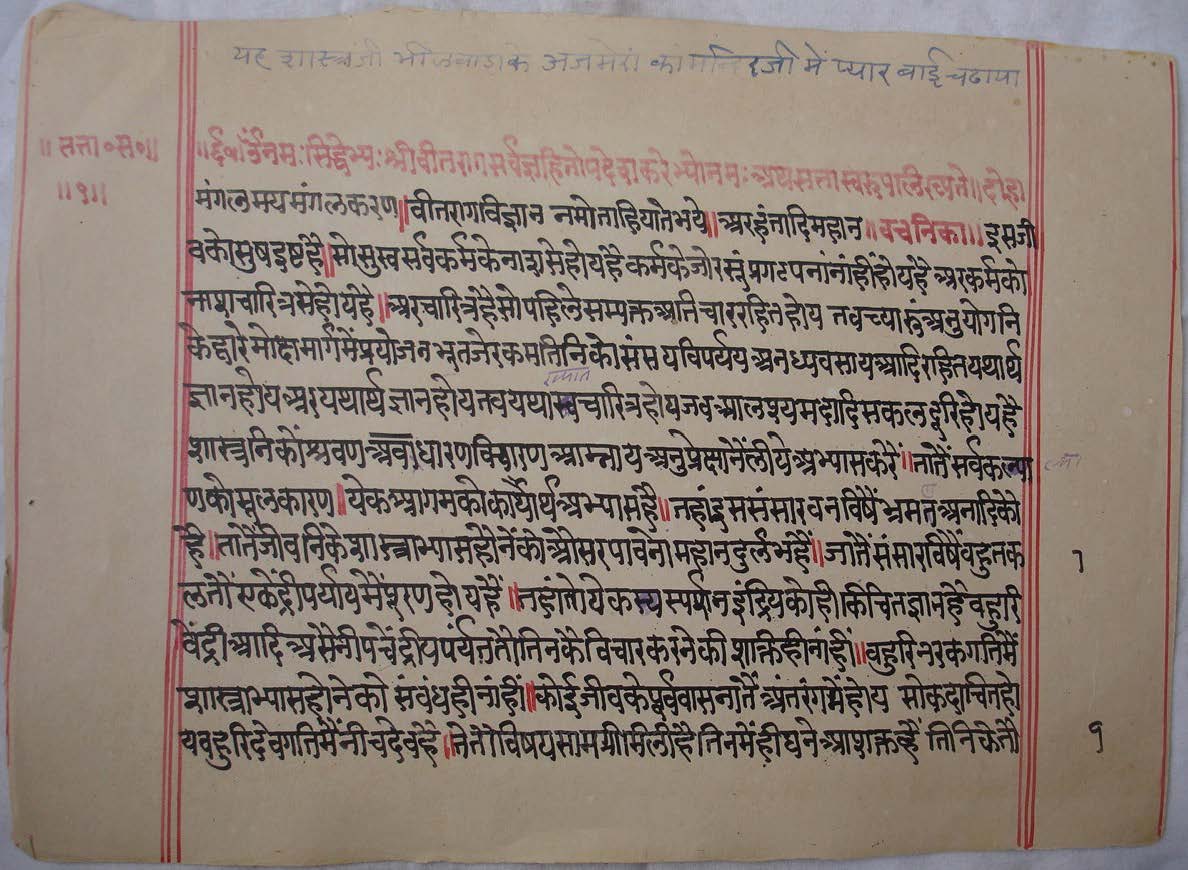 यह शास्त्रजी भीलवाडा के अजमेरा का मन्दिरजी में प्यार बाई चढाया
॥ सत्ता॰स॰॥
॥१॥
॥र्द॰॥ ॐ नमः सिद्धेभ्यः श्री वीतराग सर्वज्ञहितोपदेशकरेभ्यो नमः अथ सत्तास्वरूप लिख्यते॥ दोहा
मंगलमय मंगलकरण॥ वीतराग विज्ञान नमो ताहि यातै भये॥ अरहंतादि महान॥ वचनिका॥ इस जी
वको सुष इष्ट है॥ सो सुख सर्व कर्म के नाश से होय है कर्म के जोर सूं प्रगटपनां नांहीं होय है अर कर्म को
नाश चारित्र से होय है॥ अर चारित्र है सो पहिले सम्यक्त अतिचार रहित होय तब च्यारूं अनुयोगनि
के द्वारे मोक्षमार्ग में प्रयोजनभूत जे रकम तिनिको संसय विपर्यय अनध्यवसाय आदि रहित यथार्थ
ज्ञान होय अर यथार्थ ज्ञान होय तब यथाख चारित्र होय जब आलश्य मदादि सकल दूरि होय है
ख्यात
शास्त्रनिको श्रवण अवधारण विचारण आम्नाय अनुप्रेक्षाने लीये अभ्यास करैं॥ तातैं सर्व कल्या
णको मूल कारण॥ येक आगम को कार्यार्थ अभ्यास है॥ तहां इस संसार वन विषैं भ्रमत अनादि को
है॥ तातैं जीवनिके शास्त्राभ्यास होनें को औसर पावेना महान दुर्लभ है॥ जातैं संसार विषैं बहुत क
7
लतौं एकेंद्री पर्याय में पूरण होय है॥ तहां तो येक स्पर्शन इंद्रिय को ही किंचित ज्ञान है बहुरि
वेंद्री आदि असेनी पचेंद्रीय पर्यंत तो तिनकै विचार करने की शक्ति ही नांहीं॥ बहुरि नरकगति में
शास्त्राभ्यास होने को संबंध ही नांहीं॥ कोई जीव के पूर्व वासना तें अंतरंग में होय सो कदाचित हो
य बहुरि देवगति में नीच देव है॥ ते तो विषय सामग्री मिली है तिन में ही घने आशक्त हैं तिनि के तौ
१